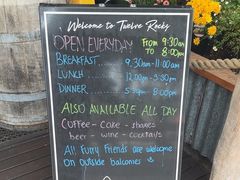 Welcome to Twelve Rocks
OPEN EVERYDAY FROM 9:30am
TO 8:00pm
BREAKFAST... 9.30am - 11:00am
LUNCH 12:00pm - 5:30pm
DINNER 5:30pm - 8:00pm
ALSO AVAILABLE ALL DAY
COFFEE - CAKE - shakes
beer - wine - cocktails
All Furry Friends are welcome
on outside balconies